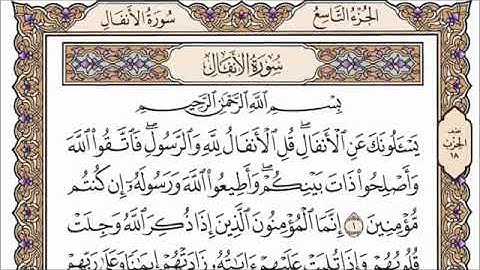 الجزء التاسع
سورة الأنفال
سُورَةُ الأَنفَالِ
بِسْمِ اللَّهِ الرَّحْمَٰنِ الرَّحِيمِ
يَسْـَٔلُونَكَ عَنِ ٱلْأَنفَالِ ۖ قُلِ ٱلْأَنفَالُ لِلَّهِ وَٱلرَّسُولِ ۖ فَٱتَّقُوا۟ ٱللَّهَ
وَأَصْلِحُوا۟ ذَاتَ بَيْنِكُمْ ۖ وَأَطِيعُوا۟ ٱللَّهَ وَرَسُولَهُۥٓ إِن كُنتُم
مُّؤْمِنِينَ ١ إِنَّمَا ٱلْمُؤْمِنُونَ ٱلَّذِينَ إِذَا ذُكِرَ ٱللَّهُ وَجِلَتْ
قُلُوبُهُمْ وَإِذَا تُلِيَتْ عَلَيْهِمْ ءَايَٰتُهُۥ زَادَتْهُمْ إِيمَٰنًا وَعَلَىٰ رَبِّهِمْ
الحزب
١٨